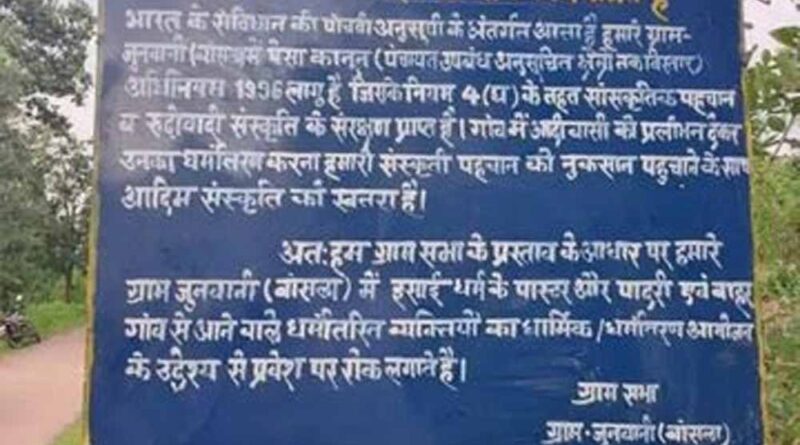 है
भारत के संविधान की पांचवी अनुसूची के अंतर्गत आता है हमारे ग्राम-
जुनवानी (बांसला) में पेसा कानून (पंचायत उपबंध अनुसूचित क्षेत्रों तक विस्तार)
अधिनियम 1996 लागू है जिसके नियम 4 (घ) के तहत सांसकृतिक पहचान
व रुढीवादी संस्कृति के संरक्षण प्राप्त है। गांव में आदीवासी को प्रलोभन देकर
उनका धर्मांतरण करना हमारी संस्कृती पहचान को नुकसान पहुचाने के साथ
आदिम संस्कृति को खतरा है।
अतः हम ग्राम सभा के प्रस्ताव के आधार पर हमारे
ग्राम जुनवानी (बांसला) में इसाई धर्म के पास्टर और पादरी एवं बाहर
गांव से आने वाले धर्मांतरित व्यक्तियों का धार्मिक / धर्मांतरण आयोजन
के उद्देश्य से प्रवेश पर रोक लगाते है।
ग्राम सभा
ग्राम - जुनवानी (बांसला)